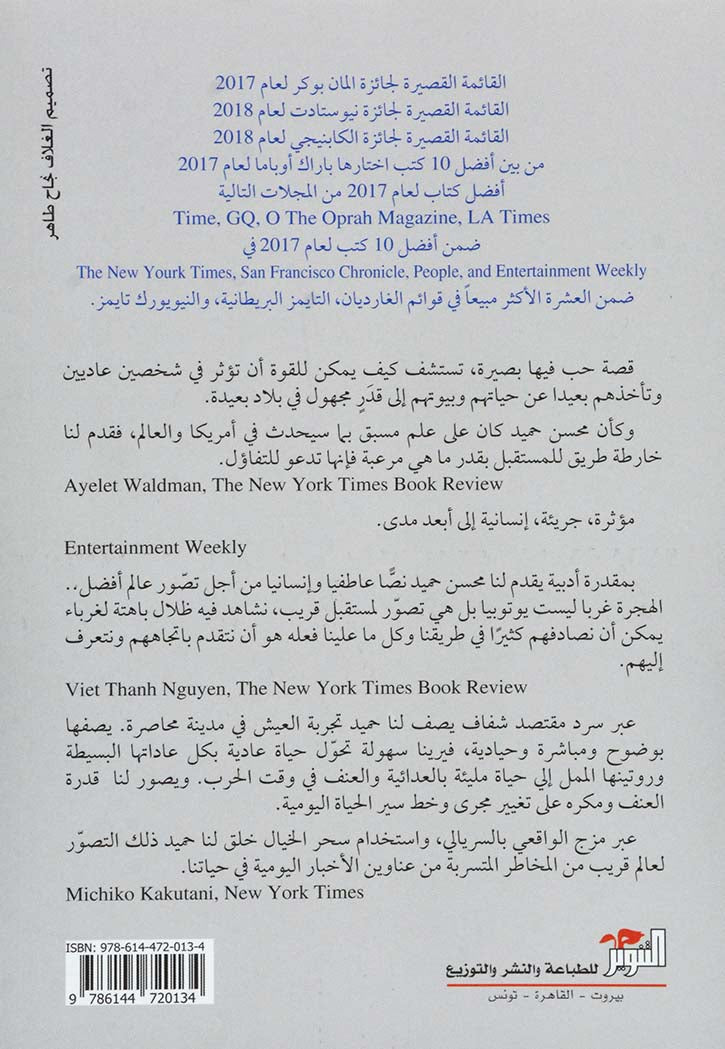 القائمة القصيرة لجائزة المان بوكر لعام 2017
القائمة القصيرة لجائزة نيوستادت لعام 2018
القائمة القصيرة لجائزة الكابنيجي لعام 2018
من بين أفضل 10 كتب اختارها باراك أوباما لعام 2017
أفضل كتاب لعام 2017 من المجلات التالية
Time, GQ, O The Oprah Magazine, LA Times
ضمن أفضل 10 كتب لعام 2017 في
The New Yourk Times, San Francisco Chronicle, People, and Entertainment Weekly
ضمن العشرة الأكثر مبيعاً في قوائم الغارديان، التايمز البريطانية، والنيويورك تايمز.
قصة حب فيها بصيرة، تستشف كيف يمكن للقوة أن تؤثر في شخصين عاديين
وتأخذهم بعيدا عن حياتهم وبيوتهم إلى قدَرٍ مجهول في بلاد بعيدة.
وكأن محسن حميد كان على علم مسبق بما سيحدث في أمريكا والعالم، فقدم لنا
خارطة طريق للمستقبل بقدر ما هي مرعبة فإنها تدعو للتفاؤل.
Ayelet Waldman, The New York Times Book Review
مؤثرة، جريئة، إنسانية إلى أبعد مدى.
Entertainment Weekly
بمقدرة أدبية يقدم لنا محسن حميد نصًّا عاطفيا وإنسانيا من أجل تصّور عالم أفضل،..
الهجرة غربا ليست يوتوبيا بل هي تصوّر لمستقبل قريب، نشاهد فيه ظلال باهتة لغرباء
يمكن أن نصادفهم كثيرًا في طريقنا وكل ما علينا فعله هو أن نتقدم باتجاههم ونتعرف
إليهم.
Viet Thanh Nguyen, The New York Times Book Review
عبر سرد مقتصد شفاف يصف لنا حميد تجربة العيش في مدينة محاصرة. يصفها
بوضوح ومباشرة وحيادية، فيرينا سهولة تحوّل حياة عادية بكل عاداتها البسيطة
وروتينها الممل إلي حياة مليئة بالعدائية والعنف في وقت الحرب. ويصور لنا قدرة
العنف ومكره على تغيير مجرى وخط سير الحياة اليومية.
عبر مزج الواقعي بالسريالي، واستخدام سحر الخيال خلق لنا حميد ذلك التصوّر
لعالم قريب من المخاطر المتسربة من عناوين الأخبار اليومية في حياتنا.
Michiko Kakutani, New York Times
تصميم الغلاف نجاح طاهر
ISBN: 978-614-472-013-4
9 786144 720134
التنوير للطباعة والنشر والتوزيع
بيروت - القاهرة - تونس